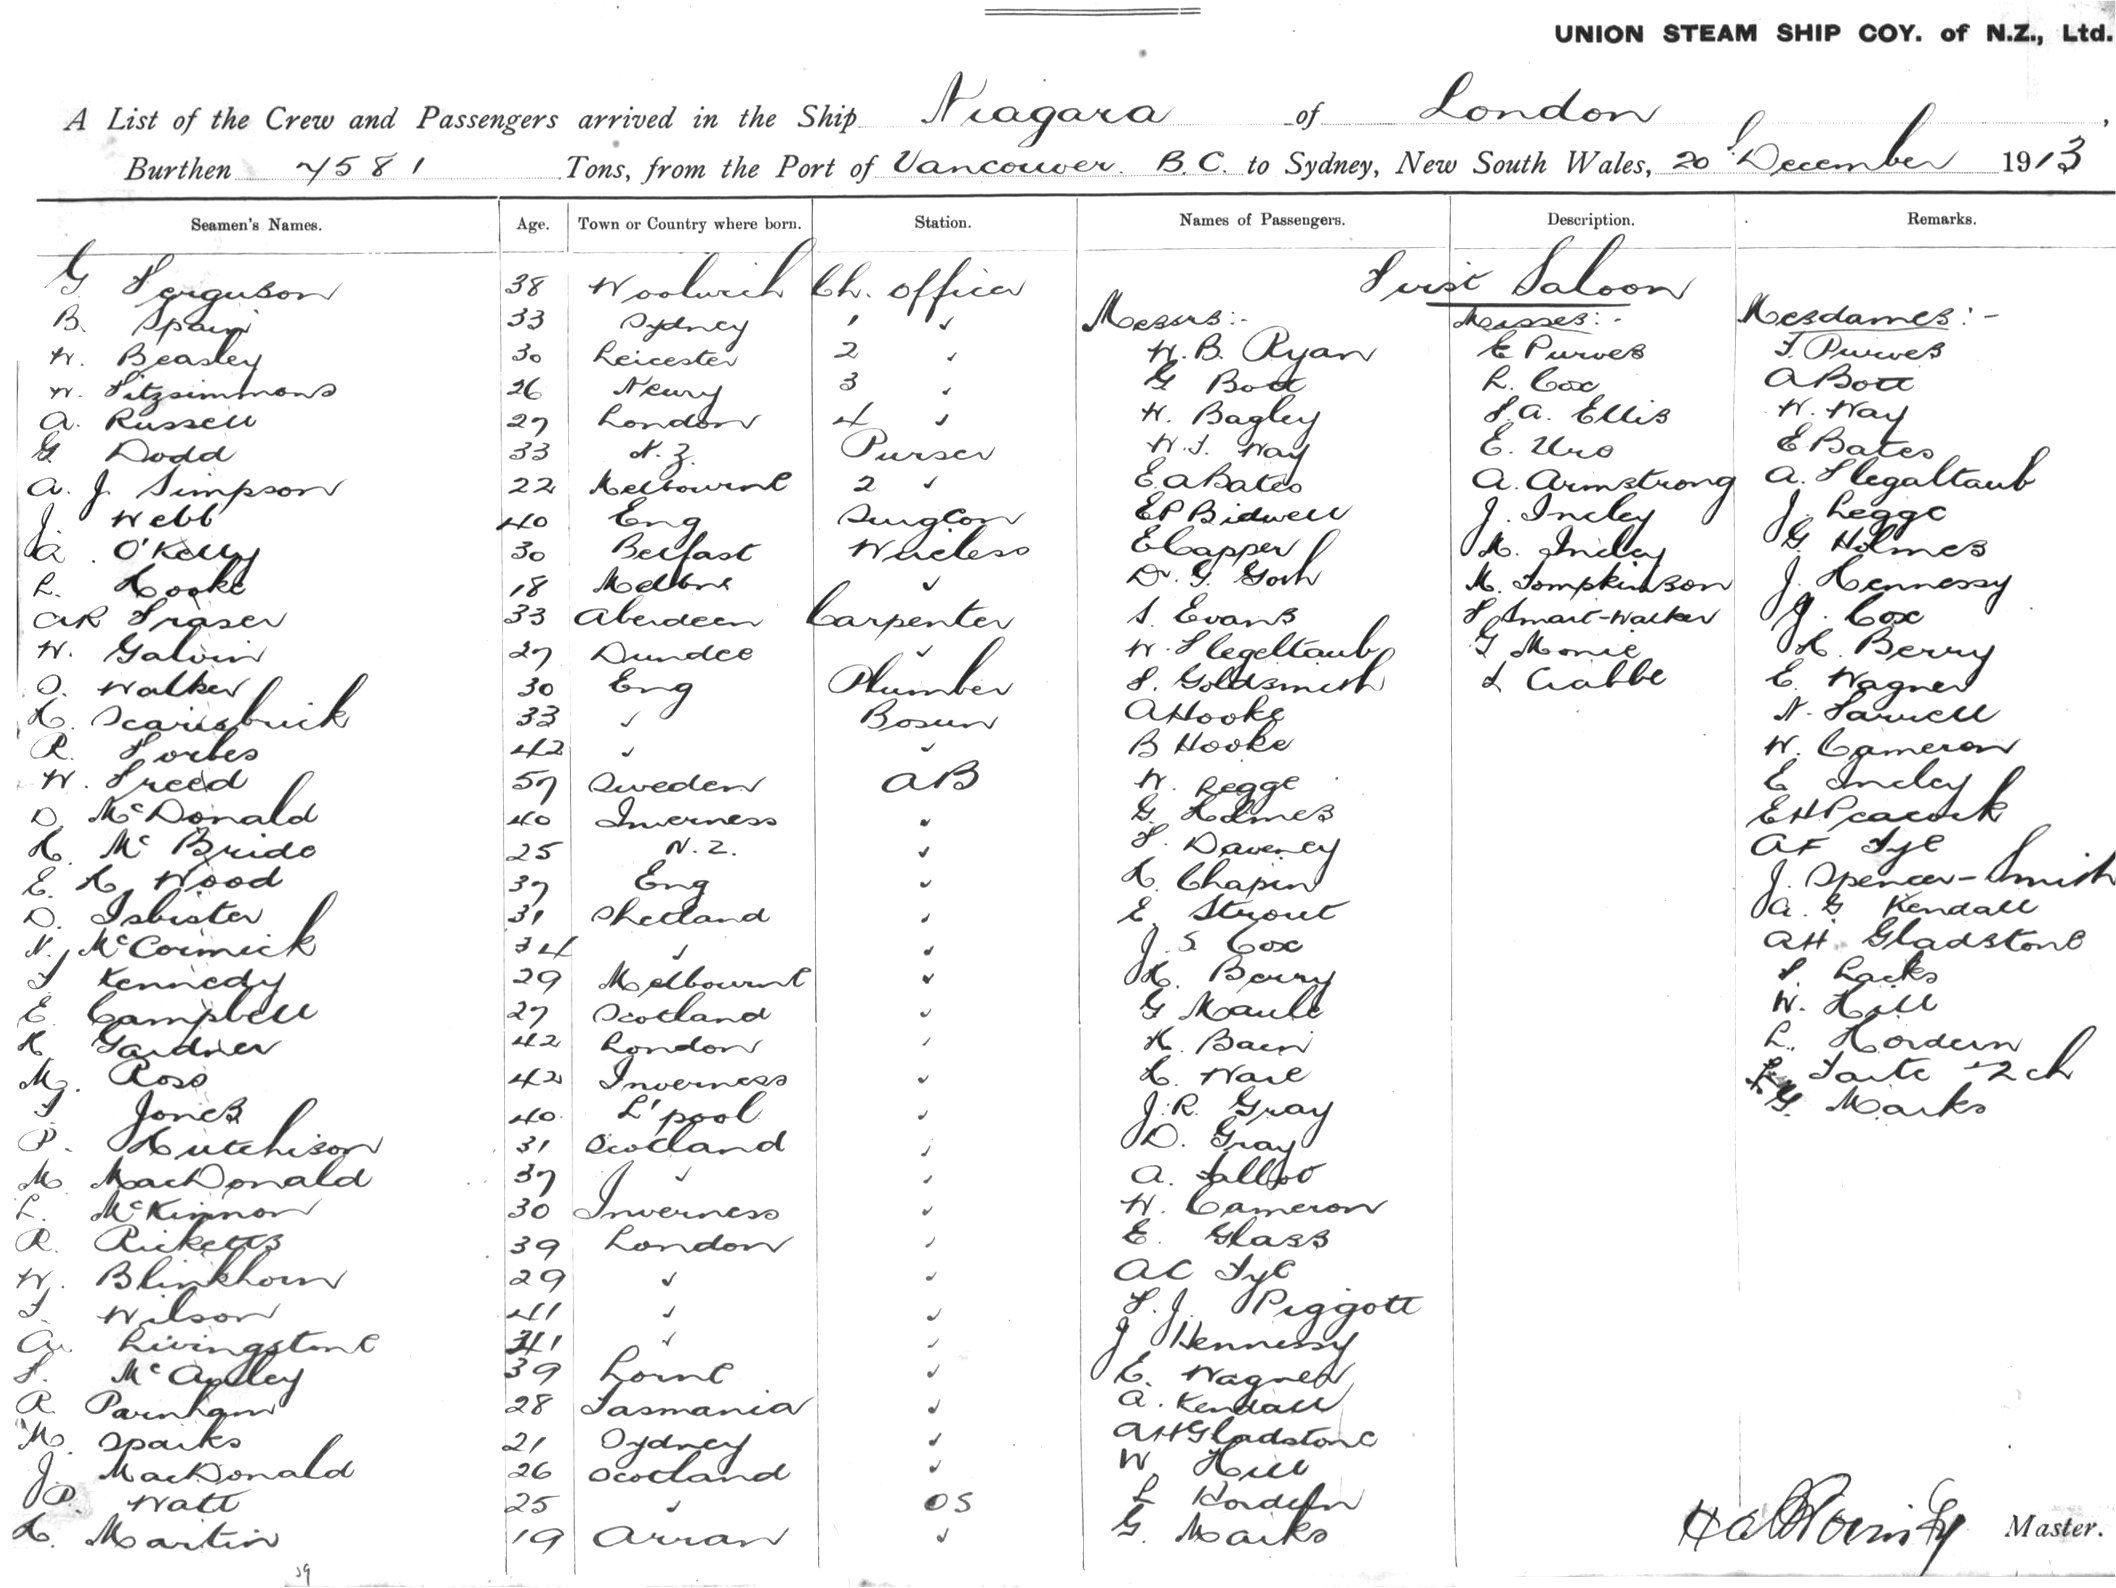 UNION STEAM SHIP COY. of N.Z., Ltd.
A List of the Crew and Passengers arrived in the Ship Niagara of London,
Burthen 7581 Tons, from the Port of Vancouver B.C. to Sydney, New South Wales, 20 December 1913
Seamen's Names. Age. Town or Country where born. Station. Names of Passengers. Description. Remarks.
First Saloon
G Ferguson 38 Woolwich Ch. Officer
Messrs:- Misses:- Mesdames:-
B. Spain 33 Sydney 1 "
W. Beasley 30 Leicester 2 " W. B. Ryan E Purves F. Purves
W. Fitzsimmons 26 Newry 3 " G Bott L. Cox A Bott
A. Russell 27 London 4 " W. Bagley F. A. Ellis W. Way
G Dodd 33 N. Z. Purser W. F. Way E. E Bates
A. J. Simpson 22 Melbourne 2 " E. A Bates A. Armstrong A. Flegaltaub
J. Webb 40 Eng Surgeon E P Bidwell J. Incley J. Legge
A. O'Kelly 30 Belfast Wireless E Capper M. Incley G. Holmes
L. Hooke 18 Melbne " Dr. G. Gosh M. Tompkinson J. Hennessy
A R Fraser 33 Aberdeen Carpenter S. Evans F Smart-Walker J. Cox
W. Galvin 27 Dundee " W. Flegeltaub G Monie H. Berry
O. Walker 30 Eng Plumber F. Goldsmith L Crabbe E. Wagner
H. Scarisbrick 33 " Bosun A Hooke N. Farrell
R. Forbes 42 " " B Hooke W. Cameron
W. Freed 57 Sweden AB W. Legge E Incley
D. McDonald 40 Inverness " G. Holmes E H Peacock
H. McBride 25 N. Z. " F. Daveney A F Fyfe
E. H. Wood 37 Eng " H. Chapin J. Spencer-Smith
D. Isbister 31 Shetland " E. Strout A. G Kendall
N. McCormick 34 " " J. S. Cox A H. Gladstone
F Kennedy 29 Melbourne " H. Berry F. Lacks
E. Campbell 27 Scotland " G Maule W. Hill
H Gardner 42 London " H. Bain L. Hordern
M. Ross 42 Inverness " H. Ware Taite + 2 ch
T Jones 40 L'pool " J. R. Gray G. Marks
P. Hutchison 31 Scotland " D. Gray
M. MacDonald 37 " " A. Talbot
L. McKinnon 30 Inverness " W. Cameron
R. Ricketts 39 London " E. Glass
W. Blinkhorn 29 " " A C Fyfe
T. Wilson 41 " " F. J. Piggott
A. Livingstone 41 " " J Hennessy
F. McAuley 39 Lorne " E. Wagner
R. Parnham 28 Tasmania " A. Kendall
M. Sparks 21 Sydney " A H Gladstone
J. MacDonald 26 Scotland " W Hill
P. Watt 25 " OS L Hordern
H. Martin 19 Arran " G. Marks
Master.
39